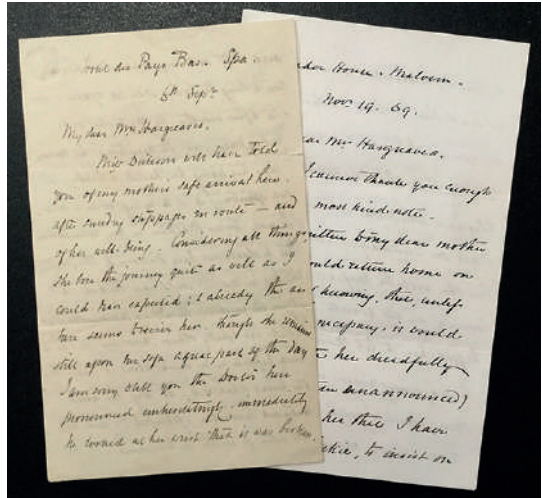 Hotel des Pays Bas. Spa.
6th Septr
My dear Mrs Hargreaves.
Miss Dickson will have told
you of my mother's safe arrival here.
after sundry stoppages en route — and
of her well-being. Considering all things
she bore the journey quite as well as I
could have expected; & already the air
here seems to revive her. though she remains
still upon the sofa a great part of the day
I am sorry to tell you the Doctor here
pronounced unhesitatingly, immediately
he looked at her wrist that it was broken.
House. Malvern.
Novr 19. 69.
ear Mrs Hargreaves.
I cannot thank you enough
most kind note.
written to my dear mother
would return home on
knowing, that, unless
necessary, it would
her dreadfully
unannounced)
her that I have
to insist on